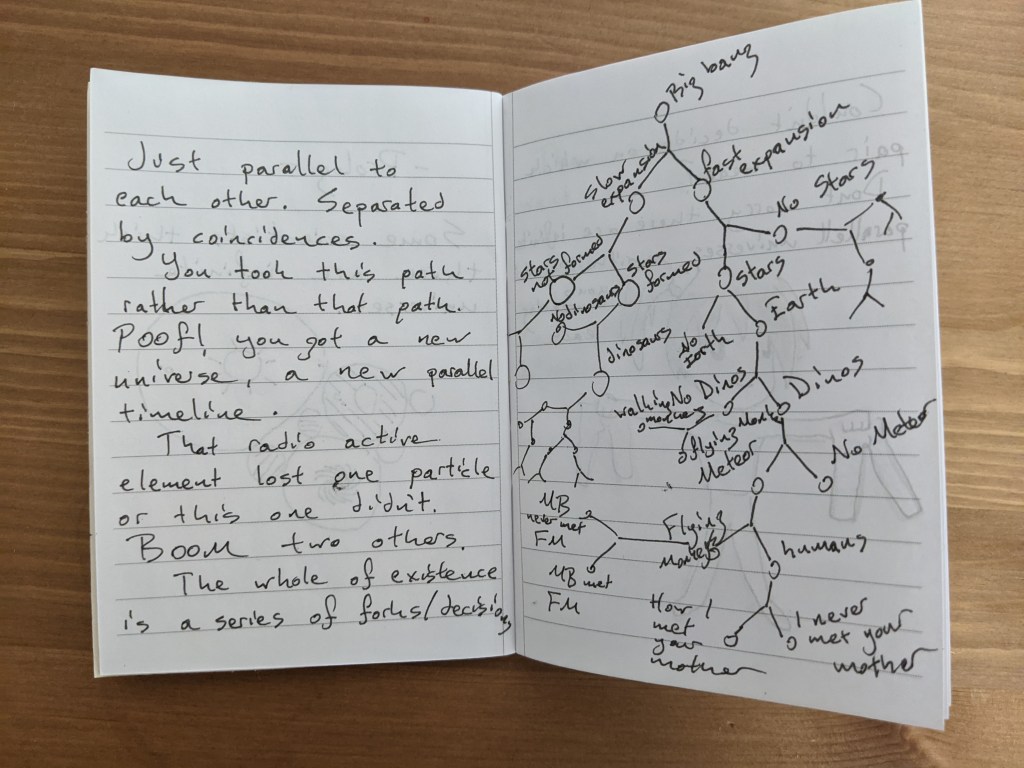 Just parallel to
each other. Separated
by coincidences.
You took this path
rather than that path.
Poof!, you got a new
universe, a new parallel
timeline.
That radio active
element lost one particle
or this one didn't.
BOOM two others.
The whole of existence
is a series of forks/decisions
Big bang
slow
expansion
fast
expansion
No Stars
stars
not formed
stars
formed
stars
No dinosaurs
dinosaurs
No
Earth
Earth
No Dinos
Dinos
walking
monkeys
flying Monkeys
Meteor
No Meteor
MB
never met
FM
MB met
FM
Flying
Monkeys
humans
How I
met
your
mother
I never
met your
mother